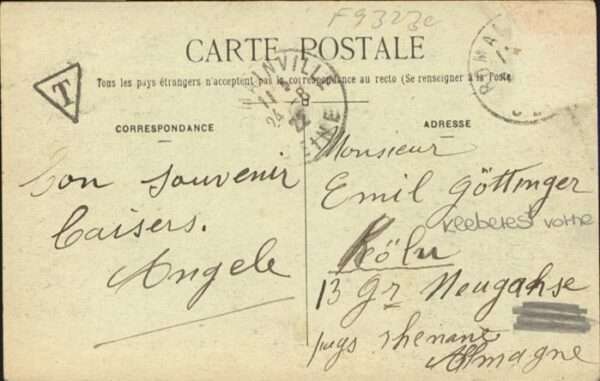 F9323c
CARTE POSTALE
Tous les pays étrangers n'acceptent pas la correspondance au recto (Se renseigner à la Poste
T
CORRESPONDANCE
ADRESSE
Bon souvenir
Baisers.
Angele
Monsieur
Emil Göttinger
Kleberest vorne
Köln
13 Gr Neugahse
pays rhenane
Allmagne